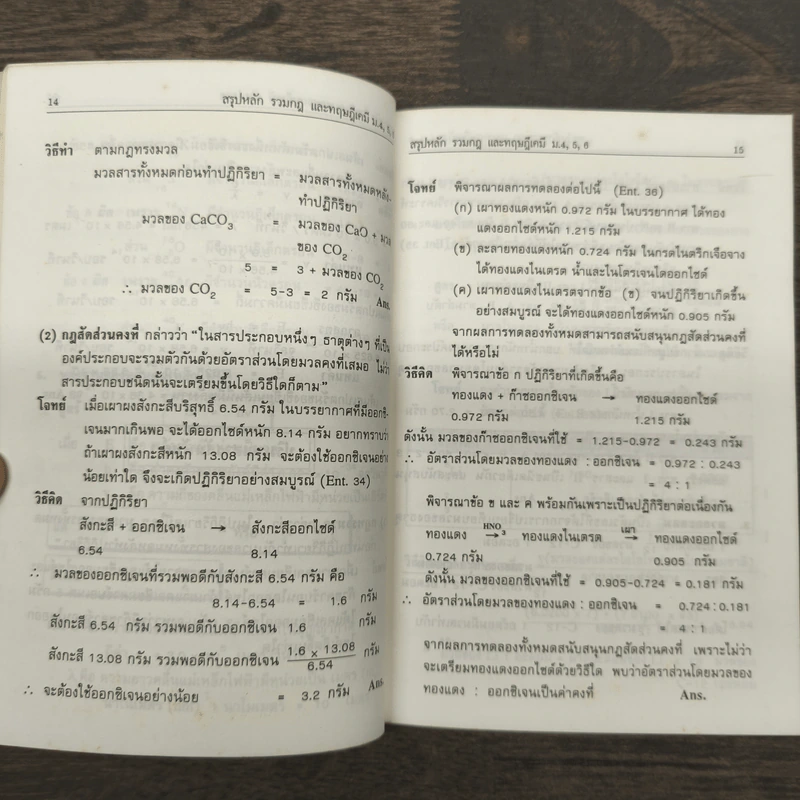 14 สรุปหลัก รวมกฎ และทฤษฎีเคมี ม.4, 5, 6
วิธีทำ ตามกฎทรงมวล
มวลสารทั้งหมดก่อนทำปฏิกิริยา = มวลสารทั้งหมดหลัง
ทำปฏิกิริยา
มวลของ CaCO3 = มวลของ CaO + มวล
ของ CO2
5 = 3 + มวลของ CO2
∴ มวลของ CO2 = 5-3 = 2 กรัม Ans.
(2) กฎสัดส่วนคงที่ กล่าวว่า "ในสารประกอบหนึ่งๆ ธาตุต่างๆ ที่เป็น
องค์ประกอบจะรวมตัวกันด้วยอัตราส่วนโดยมวลคงที่เสมอ ไม่ว่า
สารประกอบชนิดนั้นจะเตรียมขึ้นโดยวิธีใดก็ตาม"
โจทย์ เมื่อเผาผงสังกะสีบริสุทธิ์ 6.54 กรัม ในบรรยากาศที่มีออกซิ-
เจนมากเกินพอ จะได้ออกไซด์หนัก 8.14 กรัม อยากทราบว่า
ถ้าเผาผงสังกะสีหนัก 13.08 กรัม จะต้องใช้ออกซิเจนอย่าง
น้อยเท่าใด จึงจะเกิดปฏิกิริยาอย่างสมบูรณ์ (Ent. 34)
วิธีคิด จากปฏิกิริยา
สังกะสี + ออกซิเจน → สังกะสีออกไซด์
6.54 8.14
∴ มวลของออกซิเจนที่รวมพอดีกับสังกะสี 6.54 กรัม คือ
8.14-6.54 = 1.6 กรัม
สังกะสี 6.54 กรัม รวมพอดีกับออกซิเจน 1.6 กรัม
สังกะสี 13.08 กรัม รวมพอดีกับออกซิเจน 1.6 × 13.08 กรัม
6.54
∴ จะต้องใช้ออกซิเจนอย่างน้อย = 3.2 กรัม Ans.
สรุปหลัก รวมกฎ และทฤษฎีเคมี ม.4, 5, 6 15
โจทย์ พิจารณาผลการทดลองต่อไปนี้ (Ent. 36)
(ก) เผาทองแดงหนัก 0.972 กรัม ในบรรยากาศ ได้ทอง
แดงออกไซด์หนัก 1.215 กรัม
(ข) ละลายทองแดงหนัก 0.724 กรัม ในกรดไนตริกเจือจาง
ได้ทองแดงไนเตรต น้ำและไนโตรเจนไดออกไซด์
(ค) เผาทองแดงไนเตรตจากข้อ (ข) จนปฏิกิริยาเกิดขึ้น
อย่างสมบูรณ์ จะได้ทองแดงออกไซด์หนัก 0.905 กรัม
จากผลการทดลองทั้งหมดสามารถสนับสนุนกฎสัดส่วนคงที่
ได้หรือไม่
วิธีคิด พิจารณาข้อ ก ปฏิกิริยาที่เกิดขึ้นคือ
ทองแดง + ก๊าซออกซิเจน → ทองแดงออกไซด์
0.972 กรัม 1.215 กรัม
ดังนั้น มวลของก๊าซออกซิเจนที่ใช้ = 1.215-0.972 = 0.243 กรัม
∴ อัตราส่วนโดยมวลของทองแดง : ออกซิเจน = 0.972 : 0.243
= 4 : 1
พิจารณาข้อ ข และ ค พร้อมกันเพราะเป็นปฏิกิริยาต่อเนื่องกัน
ทองแดง HNO3 → ทองแดงไนเตรต เผา → ทองแดงออกไซด์
0.724 กรัม 0.905 กรัม
ดังนั้น มวลของออกซิเจนที่ใช้ = 0.905-0.724 = 0.181 กรัม
∴ อัตราส่วนโดยมวลของทองแดง : ออกซิเจน = 0.724 : 0.181
= 4 : 1
จากผลการทดลองทั้งหมดสนับสนุนกฎสัดส่วนคงที่ เพราะไม่ว่า
จะเตรียมทองแดงออกไซด์ด้วยวิธีใด พบว่าอัตราส่วนโดยมวลของ
ทองแดง : ออกซิเจนเป็นค่าคงที่ Ans.